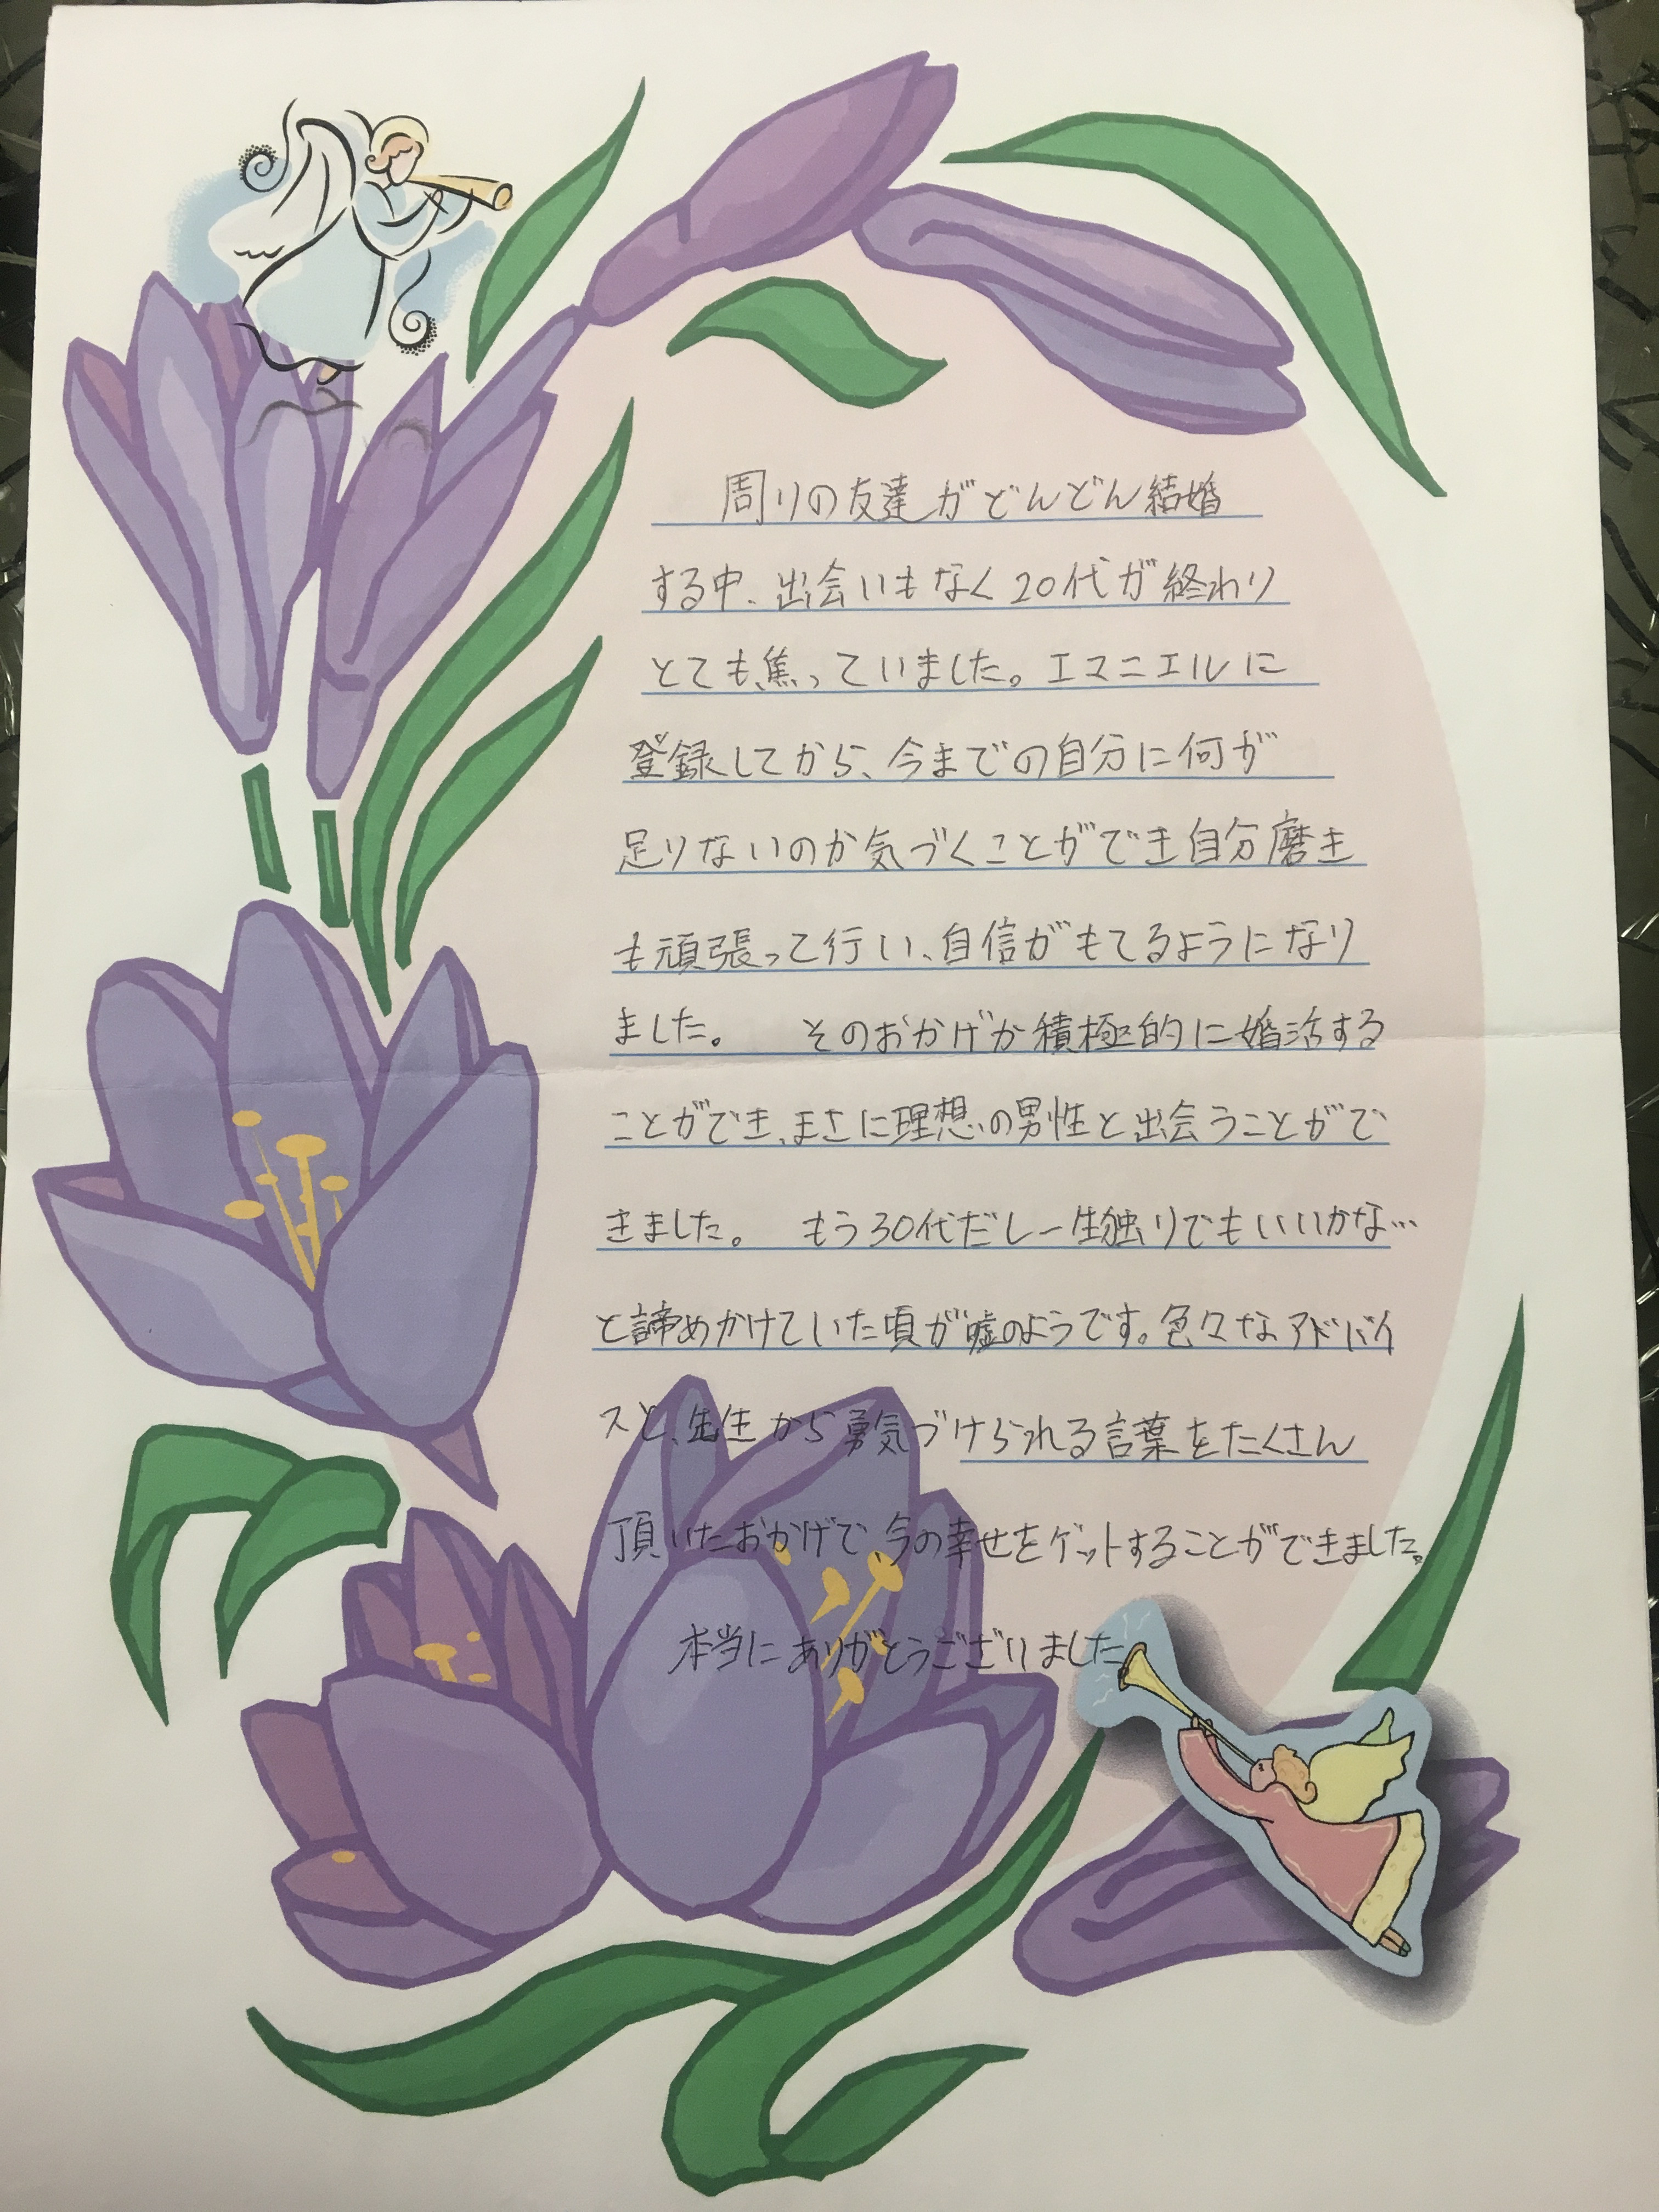 周りの友達がどんどん結婚
する中、出会いもなく20代が終わり
とても焦っていました。エマニエルに
登録してから、今までの自分に何が
足りないのか気づくことができ自分磨き
も頑張って行い、自信がもてるようになり
ました。 そのおかげか積極的に婚活する
ことができ、まさに理想の男性と出会うことがで
きました。 もう30代だし一生独りでもいいかな…
と諦めかけていた頃が嘘のようです。色々なアドバイ
スと、先生から勇気づけられる言葉をたくさん
頂いたおかげで、今の幸せをゲットすることができました。
本当にありがとうございました